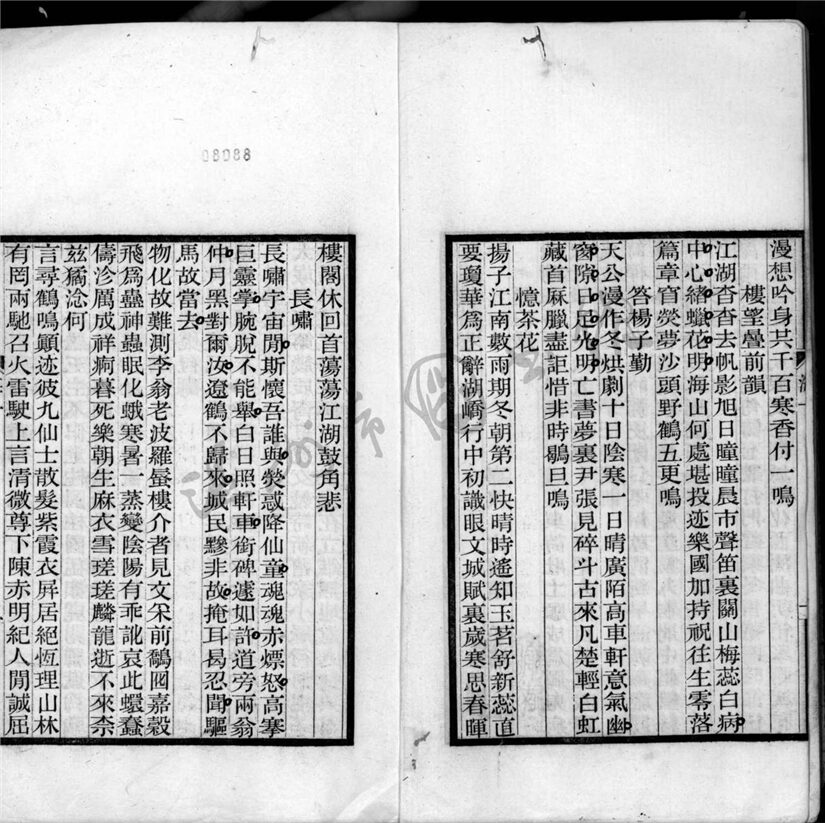 漫想吟身共千百寒香付一鳴
樓望疊前韻
江湖杳杳去帆影旭日曈曈晨市聲笛裏關山梅蕊白病
中心緒蠟花明海山何處堪投迹樂國加持祝往生零落
篇章窅熒夢沙頭野鶴五更鳴
答楊子勤
天公漫作冬烘劇十日陰寒一日晴廣陌高車軒意氣幽
窗隙日足光明亡書夢裏尹張見碎斗古來凡楚輕白虹
藏首麻臘盡詎惜非時鶡旦鳴
憶茶花
揚子江南數雨期冬朝第二快晴時遙知玉茗舒新蕊直
要瓊華為正辭湖嶠行中初識眼文城賦裏歲寒思春暉
樓閣休回首蕩蕩江湖鼓角悲
長嘯
長嘯宇宙閒斯懷吾誰與熒惑降仙童魂魂赤熛怒高搴
巨靈掌腕脫不能舉白日照軒車銜碑遽如許道旁兩翁
仲月黑對爾汝遼鶴不歸來城民黲非故掩耳曷忍聞驅
馬故當去
物化故難測李翁老波羅蜃樓介者見文采前鷸囮嘉穀
飛為蠱神蟲眠化蛾寒暑一蒸變陰陽有乖訛哀此蠉蠢
儔沴厲成祥痾暮死樂朝生麻衣雪瑳瑳麟龍逝不來柰
茲獝淰何
言尋鶴鳴顛迹彼九仙士散髮紫霞衣屏居絕恆理山林
有罔兩馳召火雷駛上言清微尊下陳赤明紀人閒誠屈
08088